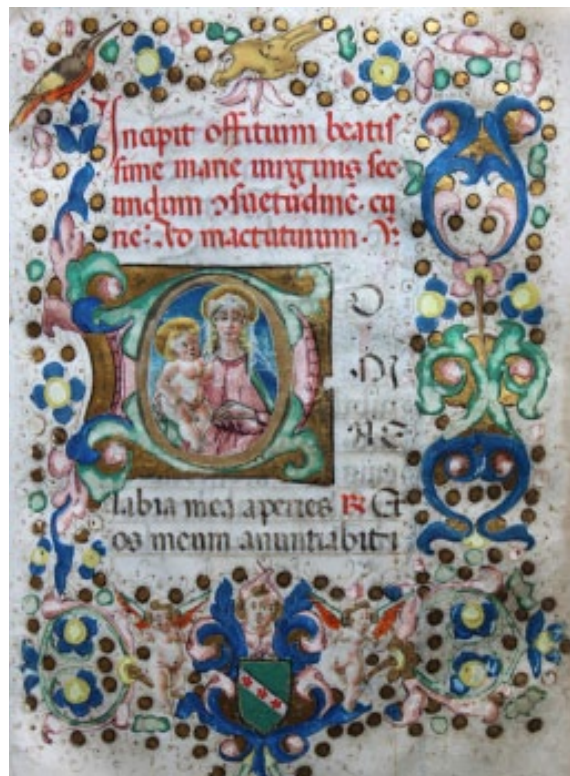 Incipit offitium beatis
sime marie uirginis sec
undum ɔsuetudinē. cu
rie: Ao mactutinum. V:
D O
MI
NE
labia mea aperies R Et
os meum anuntiabit t